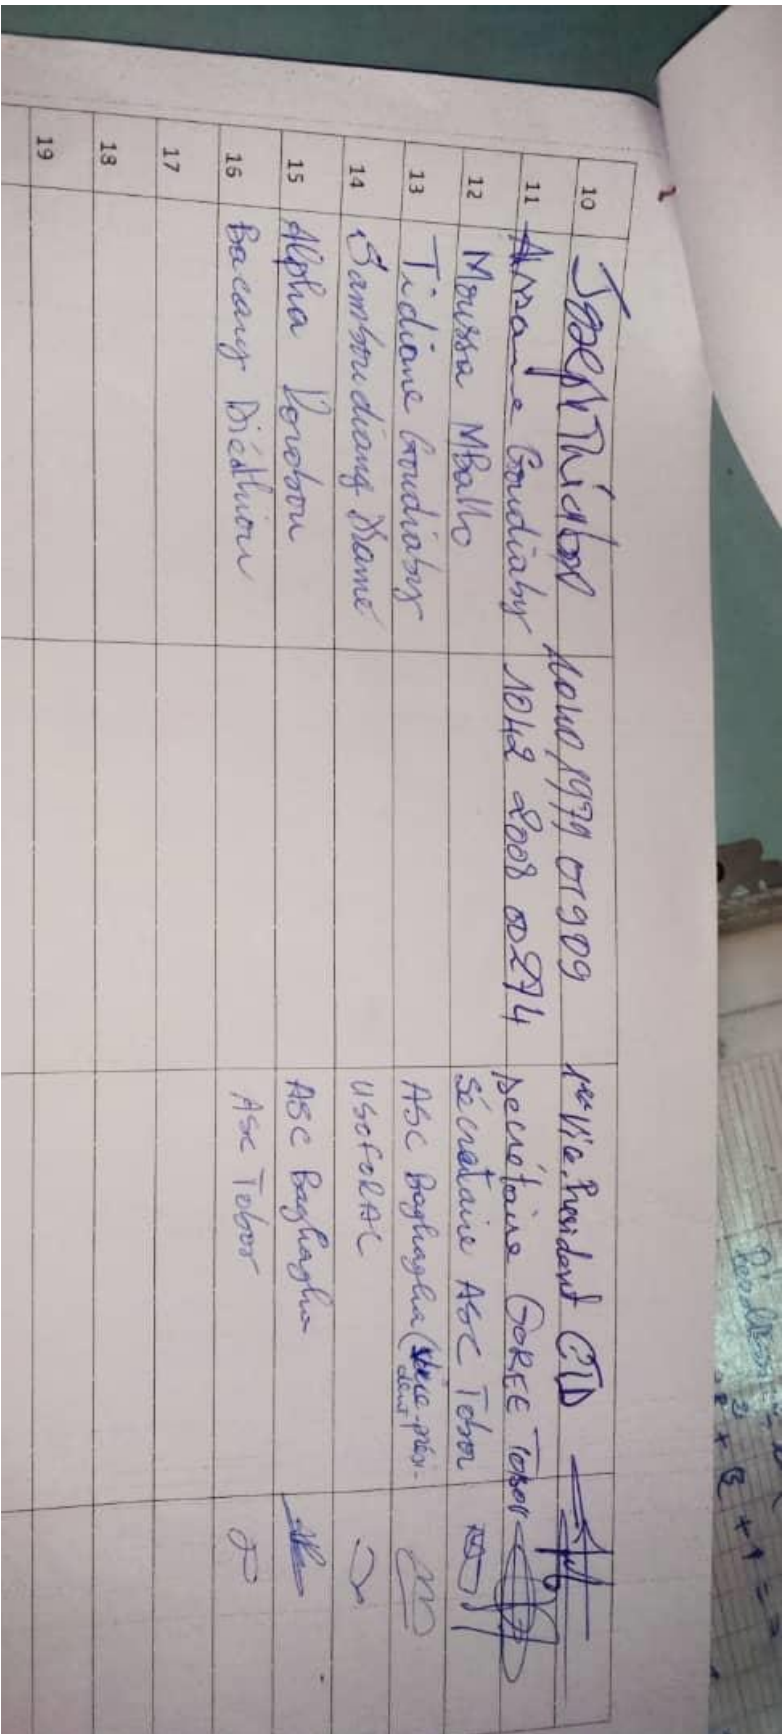 10 Joseph Thiabor 1040 1971 01909 1er Vice-President CTD
11 Assane Goudiaby 1042 2008 00274 secrétaire GOREE Tobor
12 Moussa MBallo Sécretaire ASC Tobor
13 Tidiane Goudiaby ASC Baghagha (vice-prési-
dent
14 Sambou diang Dramé USOFORAL
15 Alpha ASC Baghagha
16 Bacary Diédhiou ASC Tobor
17
18
19